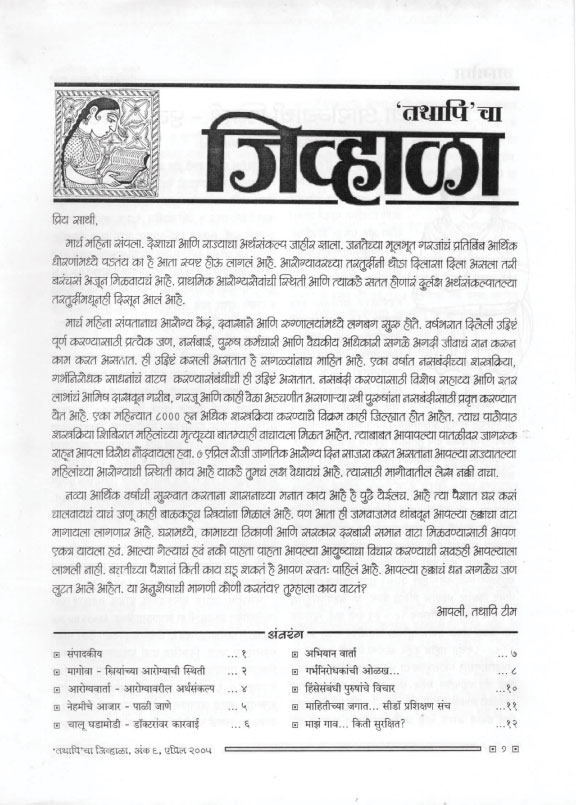 'तथापि'चा
जिव्हाळा
प्रिय साथी,
मार्च महिना संपला. देशाचा आणि राज्याचा अर्थसंकल्प जाहीर झाला. जनतेच्या मूलभूत गरजांचं प्रतिबिंब आर्थिक
धोरणांमध्ये पडतंय का हे आता स्पष्ट होऊ लागलं आहे. आरोग्यावरच्या तरतुदींनी थोडा दिलासा दिला असला तरी
बरंचसं अजून मिळवायचं आहे. प्राथमिक आरोग्यसेवांची स्थिती आणि त्याकडे सतत होणारं दुर्लक्ष अर्थसंकल्पातल्या
तरतुदींमधूनही दिसून आलं आहे.
मार्च महिना संपतानाच आरोग्य केंद्रं, दवाखाने आणि रुग्णालयांमध्ये लगबग सुरु होते. वर्षभरात दिलेली उद्दिष्टं
पूर्ण करण्यासाठी प्रत्येक जण, नर्सबाई, पुरुष कर्मचारी आणि वैद्यकीय अधिकारी सगळे अगदी जीवाचं रान करुन
काम करत असतात. ही उद्दिष्टं कसली असतात हे सगळ्यांनाच माहित आहे. एका वर्षात नसबंदीच्या शस्त्रक्रिया,
गर्भनिरोधक साधनांचं वाटप करण्यासंबंधीची ही उद्दिष्टं असतात. नसबंदी करण्यासाठी विशेष सहाय्य आणि इतर
लाभांचं आमिष दाखवून गरीब, गरजू आणि काही वेळा अडचणीत असणाऱ्या स्त्री पुरुषांना नसबंदीसाठी प्रवृत्त करण्यात
येत आहे. एका महिन्यात ८००० हून अधिक शस्त्रक्रिया करण्याचे विक्रम काही जिल्ह्यात होत आहेत. त्याच पाठोपाठ
शस्त्रक्रिया शिबिरात महिलांच्या मृत्यूच्या बातम्याही वाचायला मिळत आहेत. त्याबाबत आपापल्या पातळीवर जागरुक
राहून आपला विरोध नोंदवायला हवा. ७ एप्रिल रोजी जागतिक आरोग्य दिन साजरा करत असताना आपल्या राज्यातल्या
महिलांच्या आरोग्याची स्थिती काय आहे याकडे तुमचं लक्ष वेधायचं आहे. त्यासाठी मागोवातील लेख नक्की वाचा.
नव्या आर्थिक वर्षाची सुरुवात करताना शासनाच्या मनात काय आहे हे पुढे येईलच. आहे त्या पैशात घर कसं
चालवायचं याचं जणू काही बाळकडूच स्त्रियांना मिळालं आहे. पण आता ही जमवाजमव थांबवून आपल्या हक्काचा वाटा
मागायला लागणार आहे. घरामध्ये, कामाच्या ठिकाणी आणि सरकार दरबारी समान वाटा मिळवण्यासाठी आपण
एकत्र यायला हवं. आल्या गेल्याचं हवं नको पाहता पाहता आपल्या आयुष्याचा विचार करण्याची सवडही आपल्याला
लाभली नाही. बचतीच्या पैशानं किती काय घडू शकतं हे आपण स्वतः पाहिलं आहे. आपल्या हक्काचं धन सगळेच जण
लुटत आले आहेत. या अनुशेषाची मागणी कोणी करतंय? तुम्हाला काय वाटतं?
आपली, तथापि टीम
अंतरंग
संपादकीय ...१
मागोवा - स्त्रियांच्या आरोग्याची स्थिती ...२
आरोग्यवार्ता - आरोग्यावरील अर्थसंकल्प ...४
नेहमीचे आजार - पाळी जाणे ...५
चालू घडामोडी - डॉक्टरांवर कारवाई ...६
अभियान वार्ता ...७
गर्भनिरोधकांची ओळख... ...८
हिंसेसंबंधी पुरुषांचे विचार ...१०
माहितीच्या जगात... सीडॉ प्रशिक्षण संच ...११
माझं गाव... किती सुरक्षित? ...१२
'तथापि'चा जिव्हाळा, अंक ६, एप्रिल २००५ १